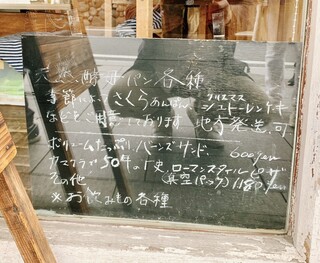 天然酵母パン各種
季節に さくらあんぱん、クリスマス
シュトーレンケーキ
などをご用意しております 地方発送可
ボリュームたっぷり、バーンズサンド、 600yen
カスクラ 504より、ローマンスタイルピザ
その他 (真空パック) 1180yen
※お飲みもの各種